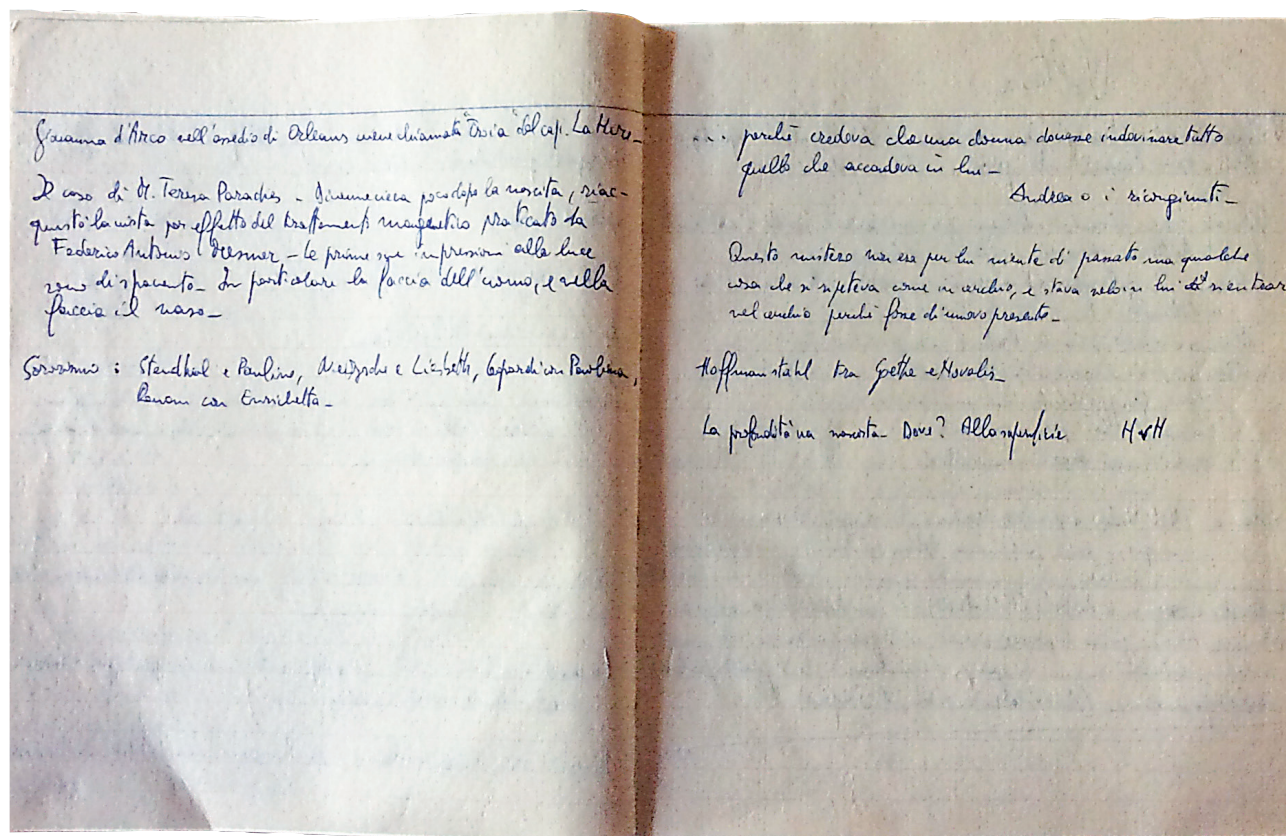 Giovanna d'Arco nell'assedio di Orleans viene chiamata "Troia" dal cap. La Hire_
Il caso di M. Teresa Parades - Divenne cieca poco dopo la nascita, riac-
quistò la vista per effetto del trattamento magnetico praticato da
Federico Antonio Mesmer - le prime sue impressioni alla luce
sono di spavento_ In particolare la faccia dell'uomo, e nella
faccia il naso_
Sororismo : Stendhal e Pauline, Nietzsche e Lisbeth, Leopardi con Paolina,
Renan con Enrichetta_
... perché credeva che una donna dovesse indovinare tutto
quello che accadeva in lui_
Andrea o i ricongiunti_
Questo mistero non era per lui niente di passato ma qualche
cosa che si ripeteva come in cerchio, e stava solo in lui di rientrare
nel cerchio perché fosse di nuovo presente_
Hoffmanstahl tra Goethe e Novalis_
La profondità va nascosta_ Dove? Alla superficie HvH